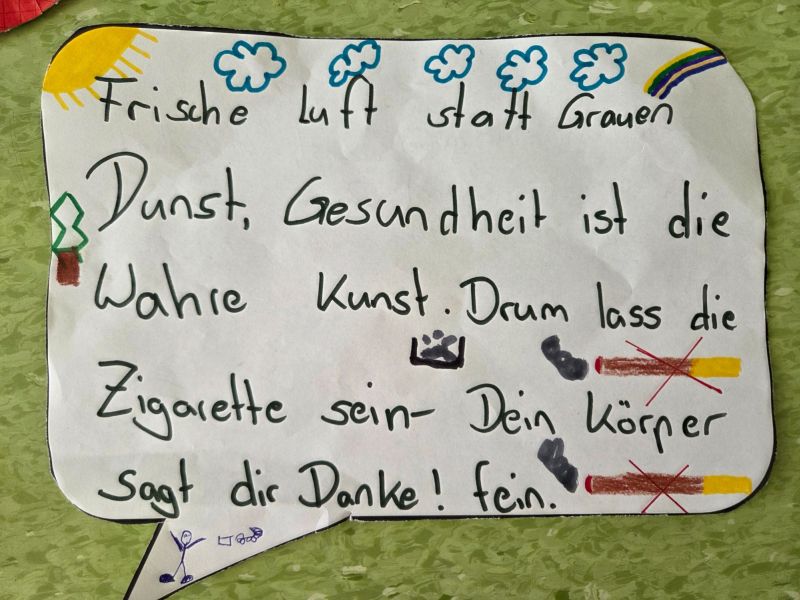 Frische Luft statt Grauen
Dunst, Gesundheit ist die
Wahre Kunst. Drum lass die
Zigarette sein- Dein Körper
sagt dir Danke! fein.